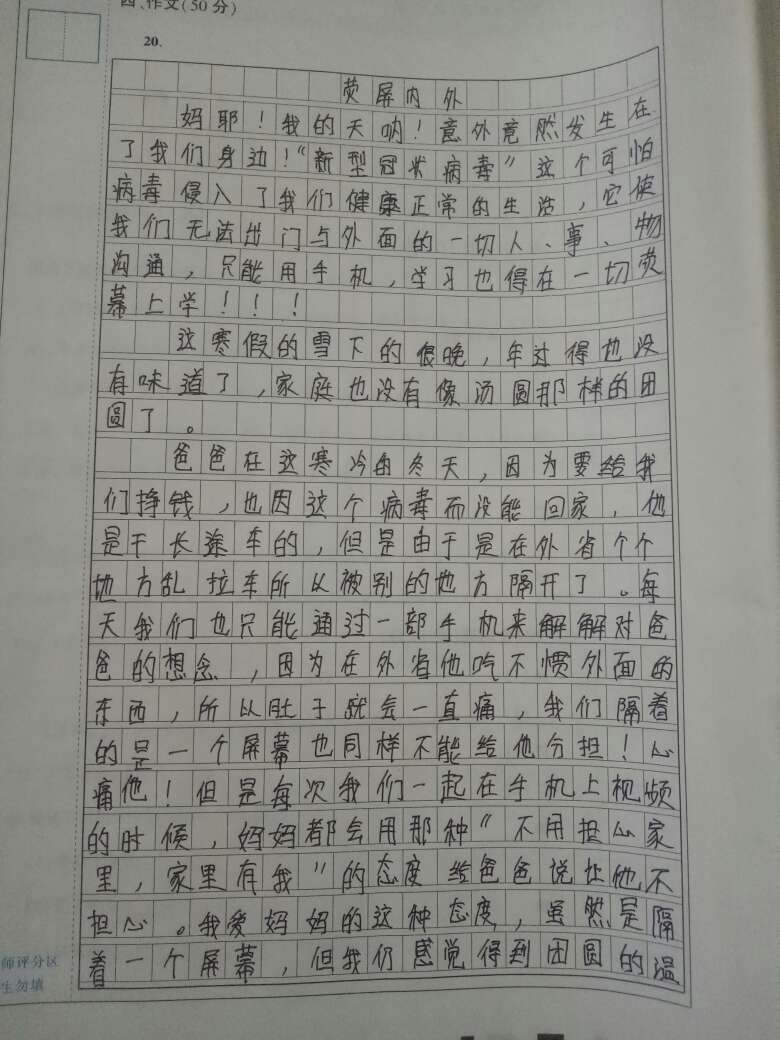 四、作文(50分)
20.
荧屏内外
妈耶!我的天呐!意外竟然发生在
了我们身边!“新型冠状病毒”这个可怕
病毒侵入了我们健康正常的生活,它使
我们无法出门与外面的一切人、事、物
沟通,只能用手机,学习也得在一切荧
幕上学!!!
这寒假的雪下的很晚,年过得也没
有味道了,家庭也没有像汤圆那样的团
圆了。
爸爸在这寒冷的冬天,因为要给我
们挣钱,也因这个病毒而没能回家,他
是干长途车的,但是由于是在外省个个
地方乱拉车所以被别的地方隔开了。每
天我们也只能通过一部手机来解解对爸
爸的想念,因为在外省他吃不惯外面的
东西,所以肚子就会一直痛,我们隔着
的是一个屏幕也同样不能给他分担!心
痛他!但是每次我们一起在手机上视频
的时候,妈妈都会用那种“不用担心家
里,家里有我”的态度给爸爸说让他不
担心。我爱妈妈的这种态度,虽然是隔
着一个屏幕,但我们感觉得到团圆的温
师评分区
生勿填